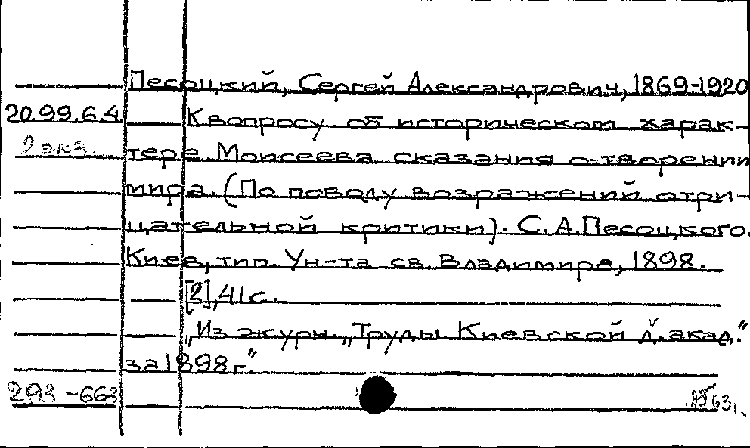 Песоцкий, Сергей Александрович, 1869-1920
20.99.6.4 К вопросу об историческом харак-
2 экз. тере Моисеева сказания о творении
мира. (По поводу возражений отри-
цательной критики). С.А.Песоцкого.
Киев, тип. Ун-та св. Владимира, 1898.
[2], 41 с.
„Из журн. „Труды Киевской д. акад."
за 1898 г."
293-663 63г.